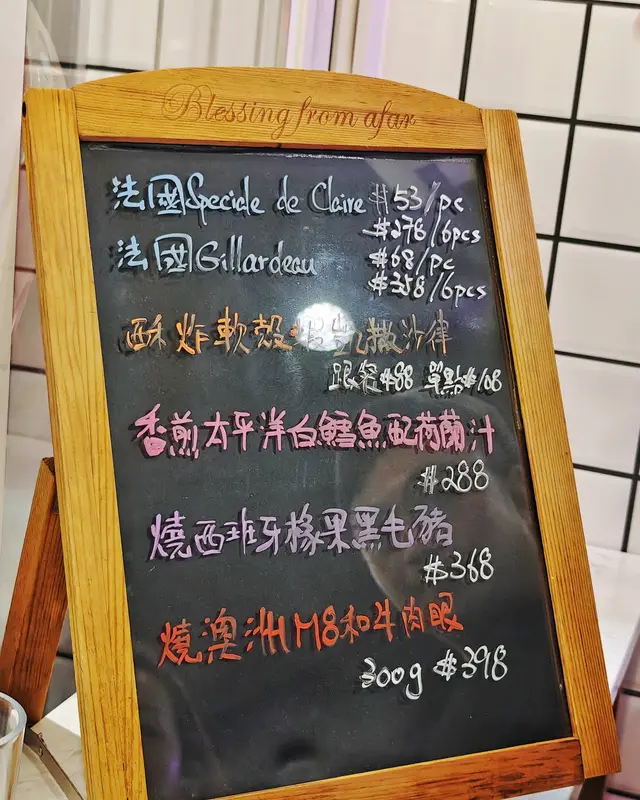 Blessing from afar
法國Speciale de Claire $53/pc
$278/6pcs
法國Gillardeau $68/pc
$358/6pcs
酥炸軟殼蟹凱撒沙律
跟餐$88 單點$108
香煎太平洋白鱈魚配荷蘭汁
$288
燒西班牙橡果黑毛豬
$368
燒澳洲M8和牛肉眼
300g $398